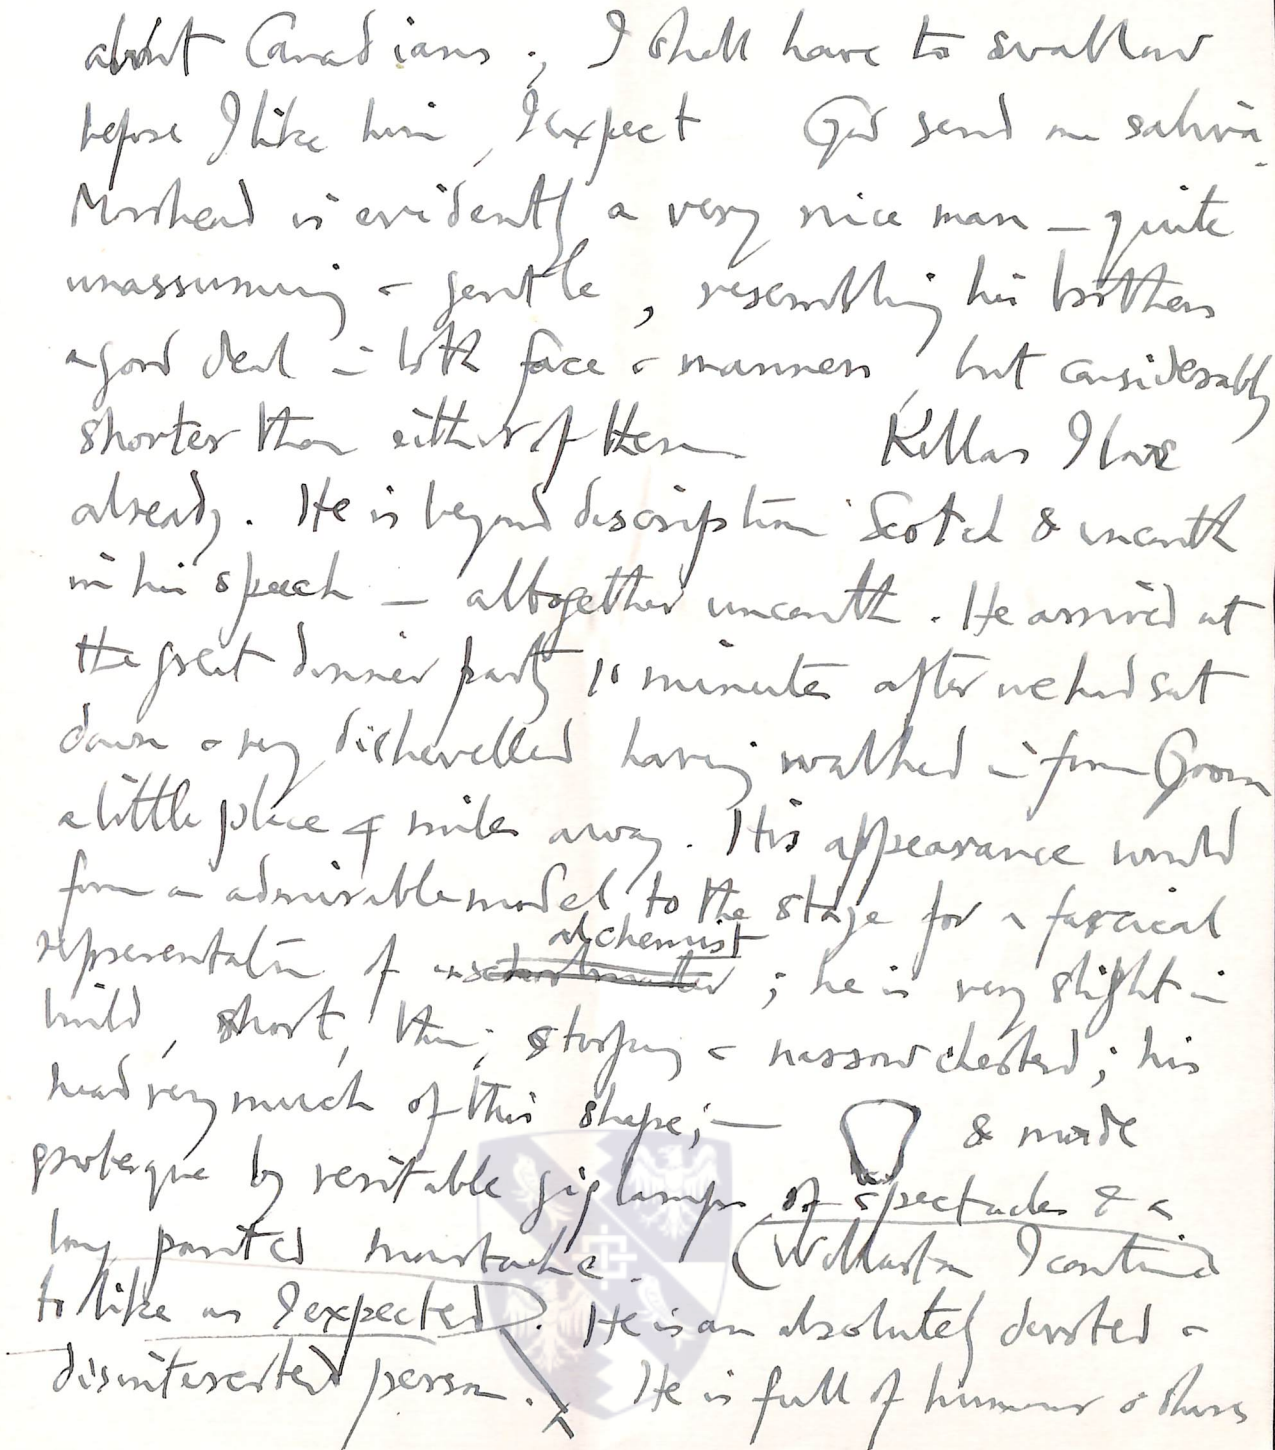 about Canadians; I shall have to swallow
before I like him, I expect God send me saliva.
Morshead is evidently a very nice man – quite
unassuming & gentle, resembling his brothers
a good deal in both face & manners, but considerably
shorter than either of them Kellas I love
already. He is beyond description Scotch & uncouth
in his speech – altogether uncouth. He arrived at
the great dinner party 10 minutes after we had sat
down & very dishevelled having walked in from Goom
a little place 4 miles away. His appearance would
form an admirable model to the stage for a farcical
alchemist
representation of an ; he is very slight in
build, short, thin, stooping & narrow chested; his
head very much of this shape;— & made
grotesque by veritable giglamps of spectacles & a
long pointed moustache. (Wollaston I continue
to like as I expected). He is an absolutely devoted &
disinterested person. He is full of humour &